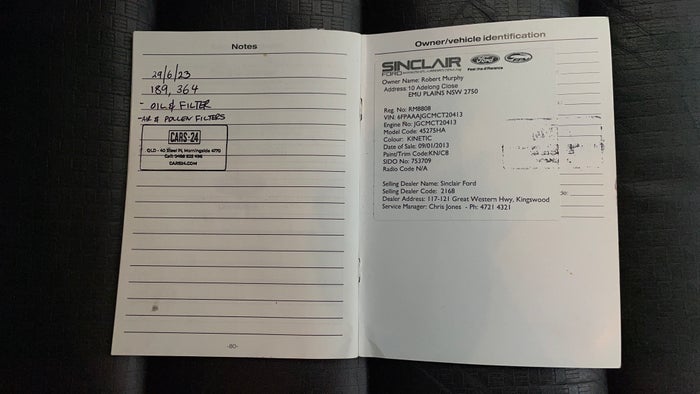 Notes
29/6/23
189,364
- OIL & FILTER
- AIR & POLLEN FILTERS
CARS-24
QLD - 40 Steel Pl, Morningside 4170
CARS24.COM
-80-
Owner/vehicle identification
SINCLAIR
FORD
Ford
Feel the difference
Owner Name: Robert Murphy
Address: 10 Adelong Close
EMU PLAINS NSW 2750
Reg. No: RM8808
VIN: 6FPAAAJGCMCT20413
Engine No: JGCMCT20413
Model Code: 45275HA
Colour: KINETIC
Date of Sale: 09/01/2013
Paint/Trim Code:KN/C8
SIDO No: 753709
Radio Code N/A
Selling Dealer Name: Sinclair Ford
Selling Dealer Code: 2168
Dealer Address: 117-121 Great Western Hwy, Kingswood
Service Manager: Chris Jones - Ph: 4721 4321